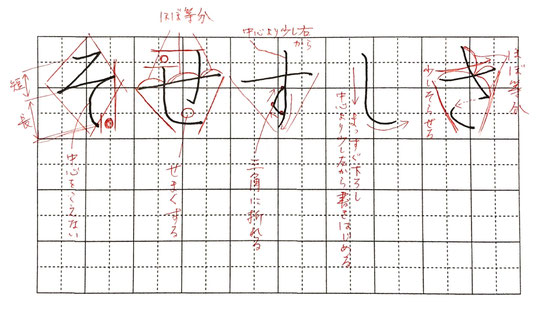 さ
ほぼ等分
少しそらせる
し
まっすぐ下ろし
中心より少し右から書きはじめる
す
中心より少し右
から
三角に折れる
せ
ほぼ等分
せまくする
そ
短
長
中心をこえない